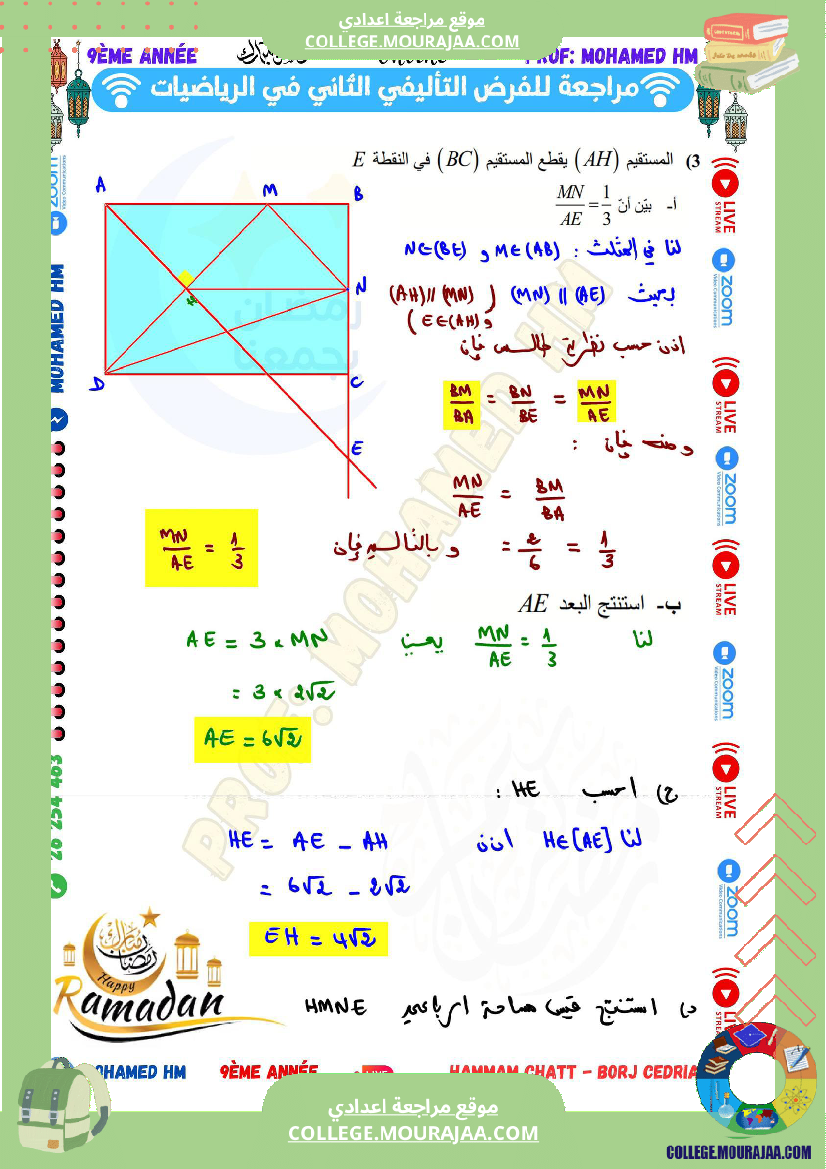 موقع مراجعة اعدادي
COLLEGE.MOURAJAA.COM
9ÈME ANNÉE
PROF: MOHAMED HM
مراجعة للفرض التأليفي الثاني في الرياضيات
3) المستقيم (AH) يقطع المستقيم (BC) في النقطة E
أ- بيّن أنّ MN/AE = 1/3
لنا في المثلث : M∈(AB) و N∈(BE)
بحيث (MN) // (AE) ( (AH)//(MN)
و E∈(AH) )
اذن حسب نظرية طالس فإن
BM/BA = BN/BE = MN/AE
ومنه فإن :
MN/AE = BM/BA
= 2/6 = 1/3 وبالتالي فإن MN/AE = 1/3
ب- استنتج البعد AE
لنا MN/AE = 1/3 يعني AE = 3 × MN
= 3 × 2√2
AE = 6√2
ج) احسب HE :
لنا H∈[AE] اذن HE = AE - AH
= 6√2 - 2√2
EH = 4√2
د) استنتج قيس مساحة الرباعي HMNE
A
M
B
N
H
D
C
E
رمضان
يجمعنا
PROF: MOHAMED HM
zoom
Video Communications
MOHAMED HM
26 254 463
LIVE
STREAM
zoom
Video Communications
LIVE
STREAM
zoom
Video Communications
LIVE
STREAM
zoom
Video Communications
LIVE
STREAM
zoom
Video Communications
رمضان مبارك
Happy
Ramadan
MOHAMED HM
9ÈME ANNÉE
HAMMAM CHATT - BORJ CEDRIA
موقع مراجعة اعدادي
COLLEGE.MOURAJAA.COM
COLLEGE.MOURAJAA.COM